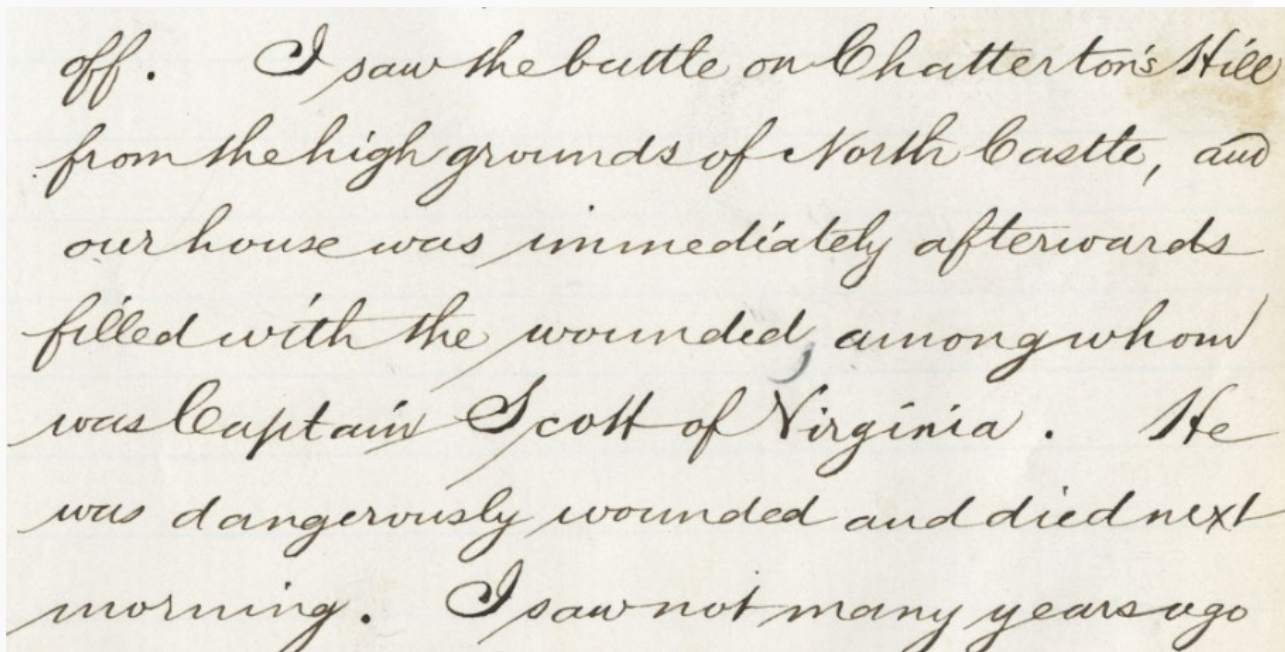 off. I saw the battle on Chatterton's Hill
from the high grounds of North Castle, and
our house was immediately afterwards
filled with the wounded, among whom
was Captain Scott of Virginia. He
was dangerously wounded and died next
morning. I saw not many years ago